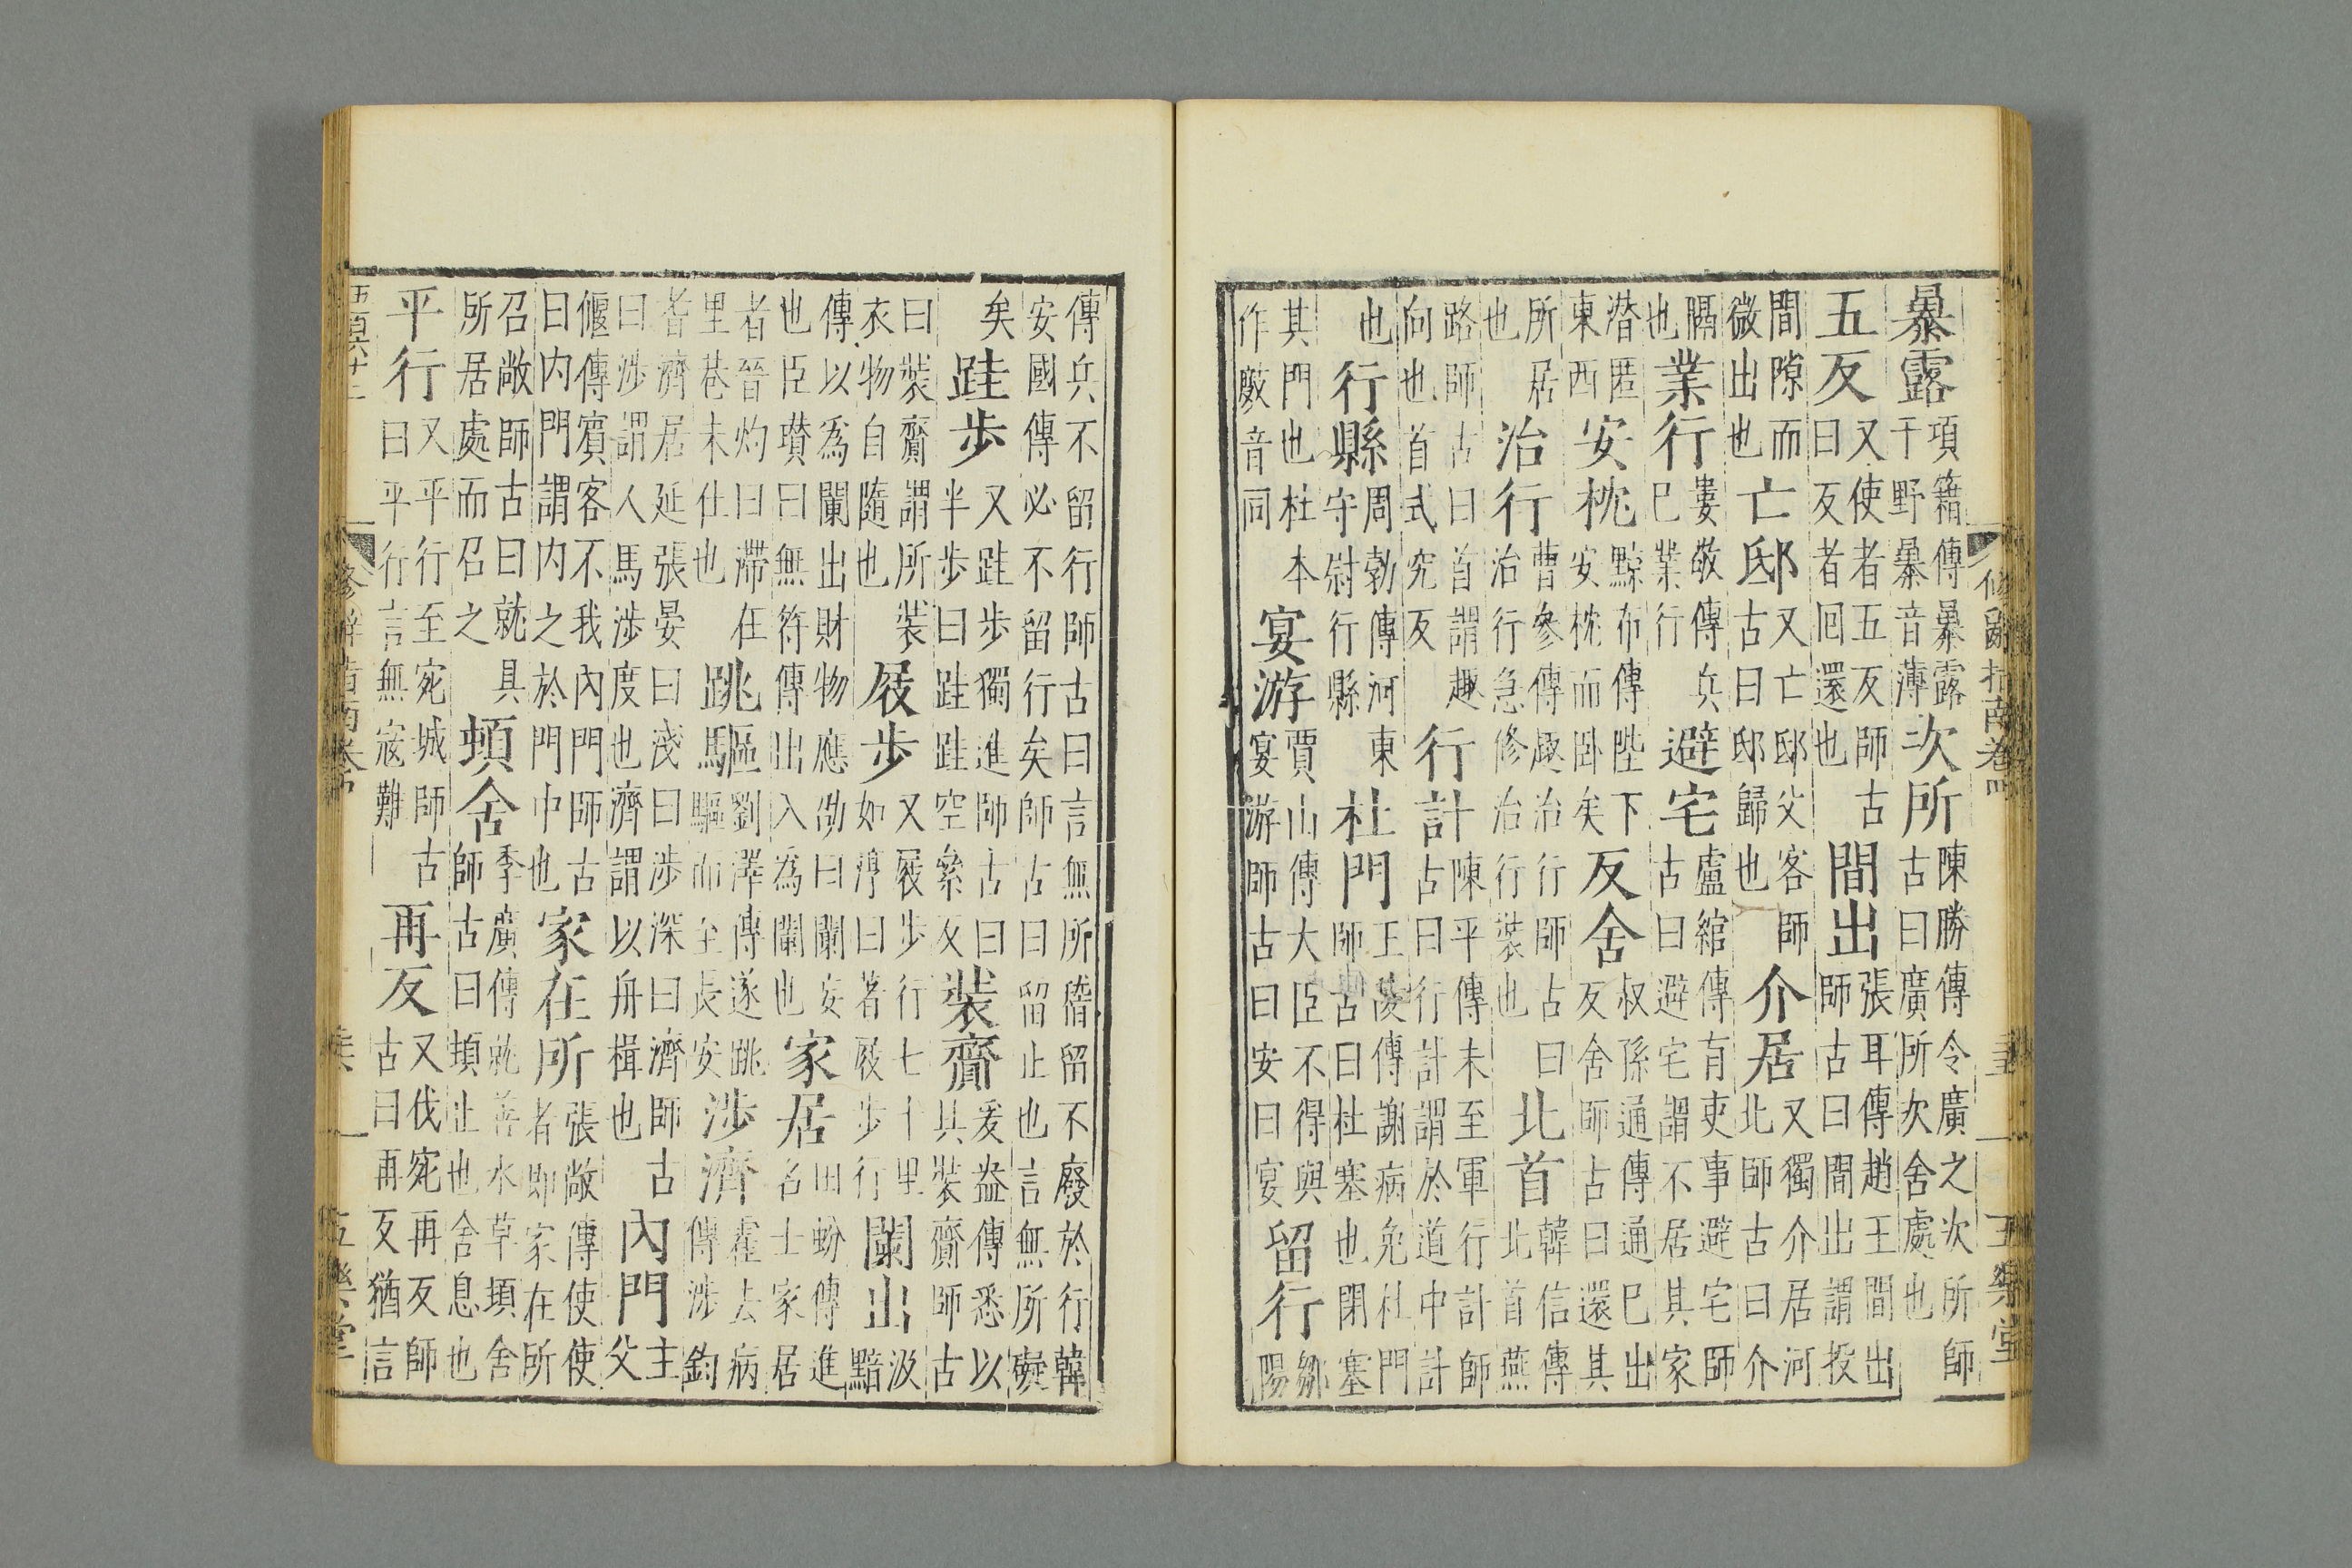 修辭指南卷四 五樂堂
暴露項籍傳暴露干野暴音薄次所陳勝傳令廣之次所師古曰廣所次舍處也
五反又使者五反師古曰反者回還也間出張耳傳趙王間出師古曰間出謂投
間隙而微出也亡邸又亡邸父客師古曰邸歸也介居又獨介居河北師古曰介
隔也業行婁敬傳兵已業行避宅盧綰傳有吏事避宅師古曰避宅謂不居其家
潜匿東西安枕黥布傳陛下安枕而卧矣反舍叔孫通傳通已出反舍師古曰還其
所居也治行曹參傳趣治行師古曰治行急修治行裝也北首韓信傳北首燕
路師古曰首謂趣向也首式究反行計陳平傳未至軍行計師古曰行計謂於道中計
也行縣周勃傳河東守尉行縣杜門王陵傳謝病免杜門師古曰杜塞也閉塞
其門也杜本作音同宴游賈山傳大臣不得與宴游師古曰安曰宴留行鄒陽
傳兵不留行師古曰言無所稽留不廢於行韓安國傳必不留行矣師古曰留止也言無所礙
矣跬步又跬步獨進師古曰半步曰跬跬空絫反裝齎爰盎傳悉以具裝齎師古
曰裝齎謂所裝衣物自隨也屐步又屐步行七十里如淳曰著屐步行闌出汲黯
傳以為闌出財物應劭曰闌妄也臣瓚曰無符傳出入為闌也家居田蚡傳進名士家居
者晉灼曰滯在里巷未仕也跳驅劉澤傳遂跳驅而至長安涉濟霍去病傳涉鈞
耆濟居延張晏曰淺曰涉深曰濟師古曰涉謂人馬涉度也濟謂以舟楫也內門主父
偃傳賓客不我內門師古曰内門謂内之於門中也家在所張敞傳使使者即家在所
召敞師古曰就具所居處而召之頓舍李廣傳就善水草頓舍師古曰頓止也舍息也
平行又平行至宛城師古曰平行言無寇難再反又伐宛再反師古曰再反猶言
修辭指南卷 五樂堂